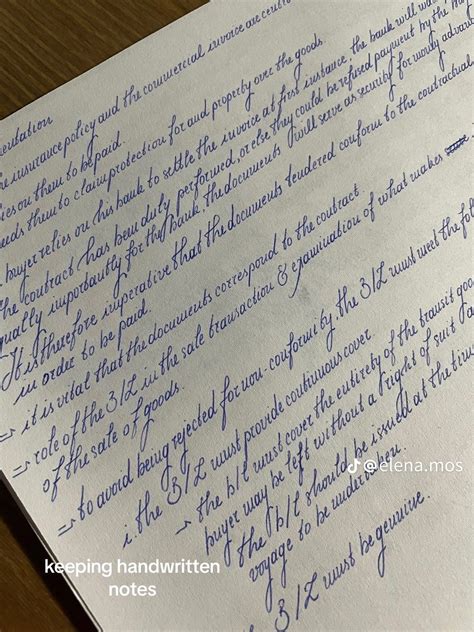 entation
he insurance policy and the commercial invoice are centra
ies on them to be paid.
eeds them to claim protection for and property over the goods.
buyer relies on his bank to settle the invoice at first instance the bank will wan
he contract has been duly performed, or else they could be refused payment by the
qually importantly for the bank, the documents will serve as security for money advanc
It is therefore imperative that the documents tendered conform to the contractual
in order to be paid.
→ it is vital that the documents correspond to the contract
→ role of the B/L in the sale transaction & examination of what makes
of the sale of goods.
→ to avoid being rejected for non-conformity the B/L must meet the fol
i. the B/L must provide continuous cover
→ the b/l must cover the entirety of the transit goo
buyer may be left without a right of suit a
the b/l should be issued at the tim
voyage to be undertaken.
B/L must be genuine.
@elena.mos
keeping handwritten
notes